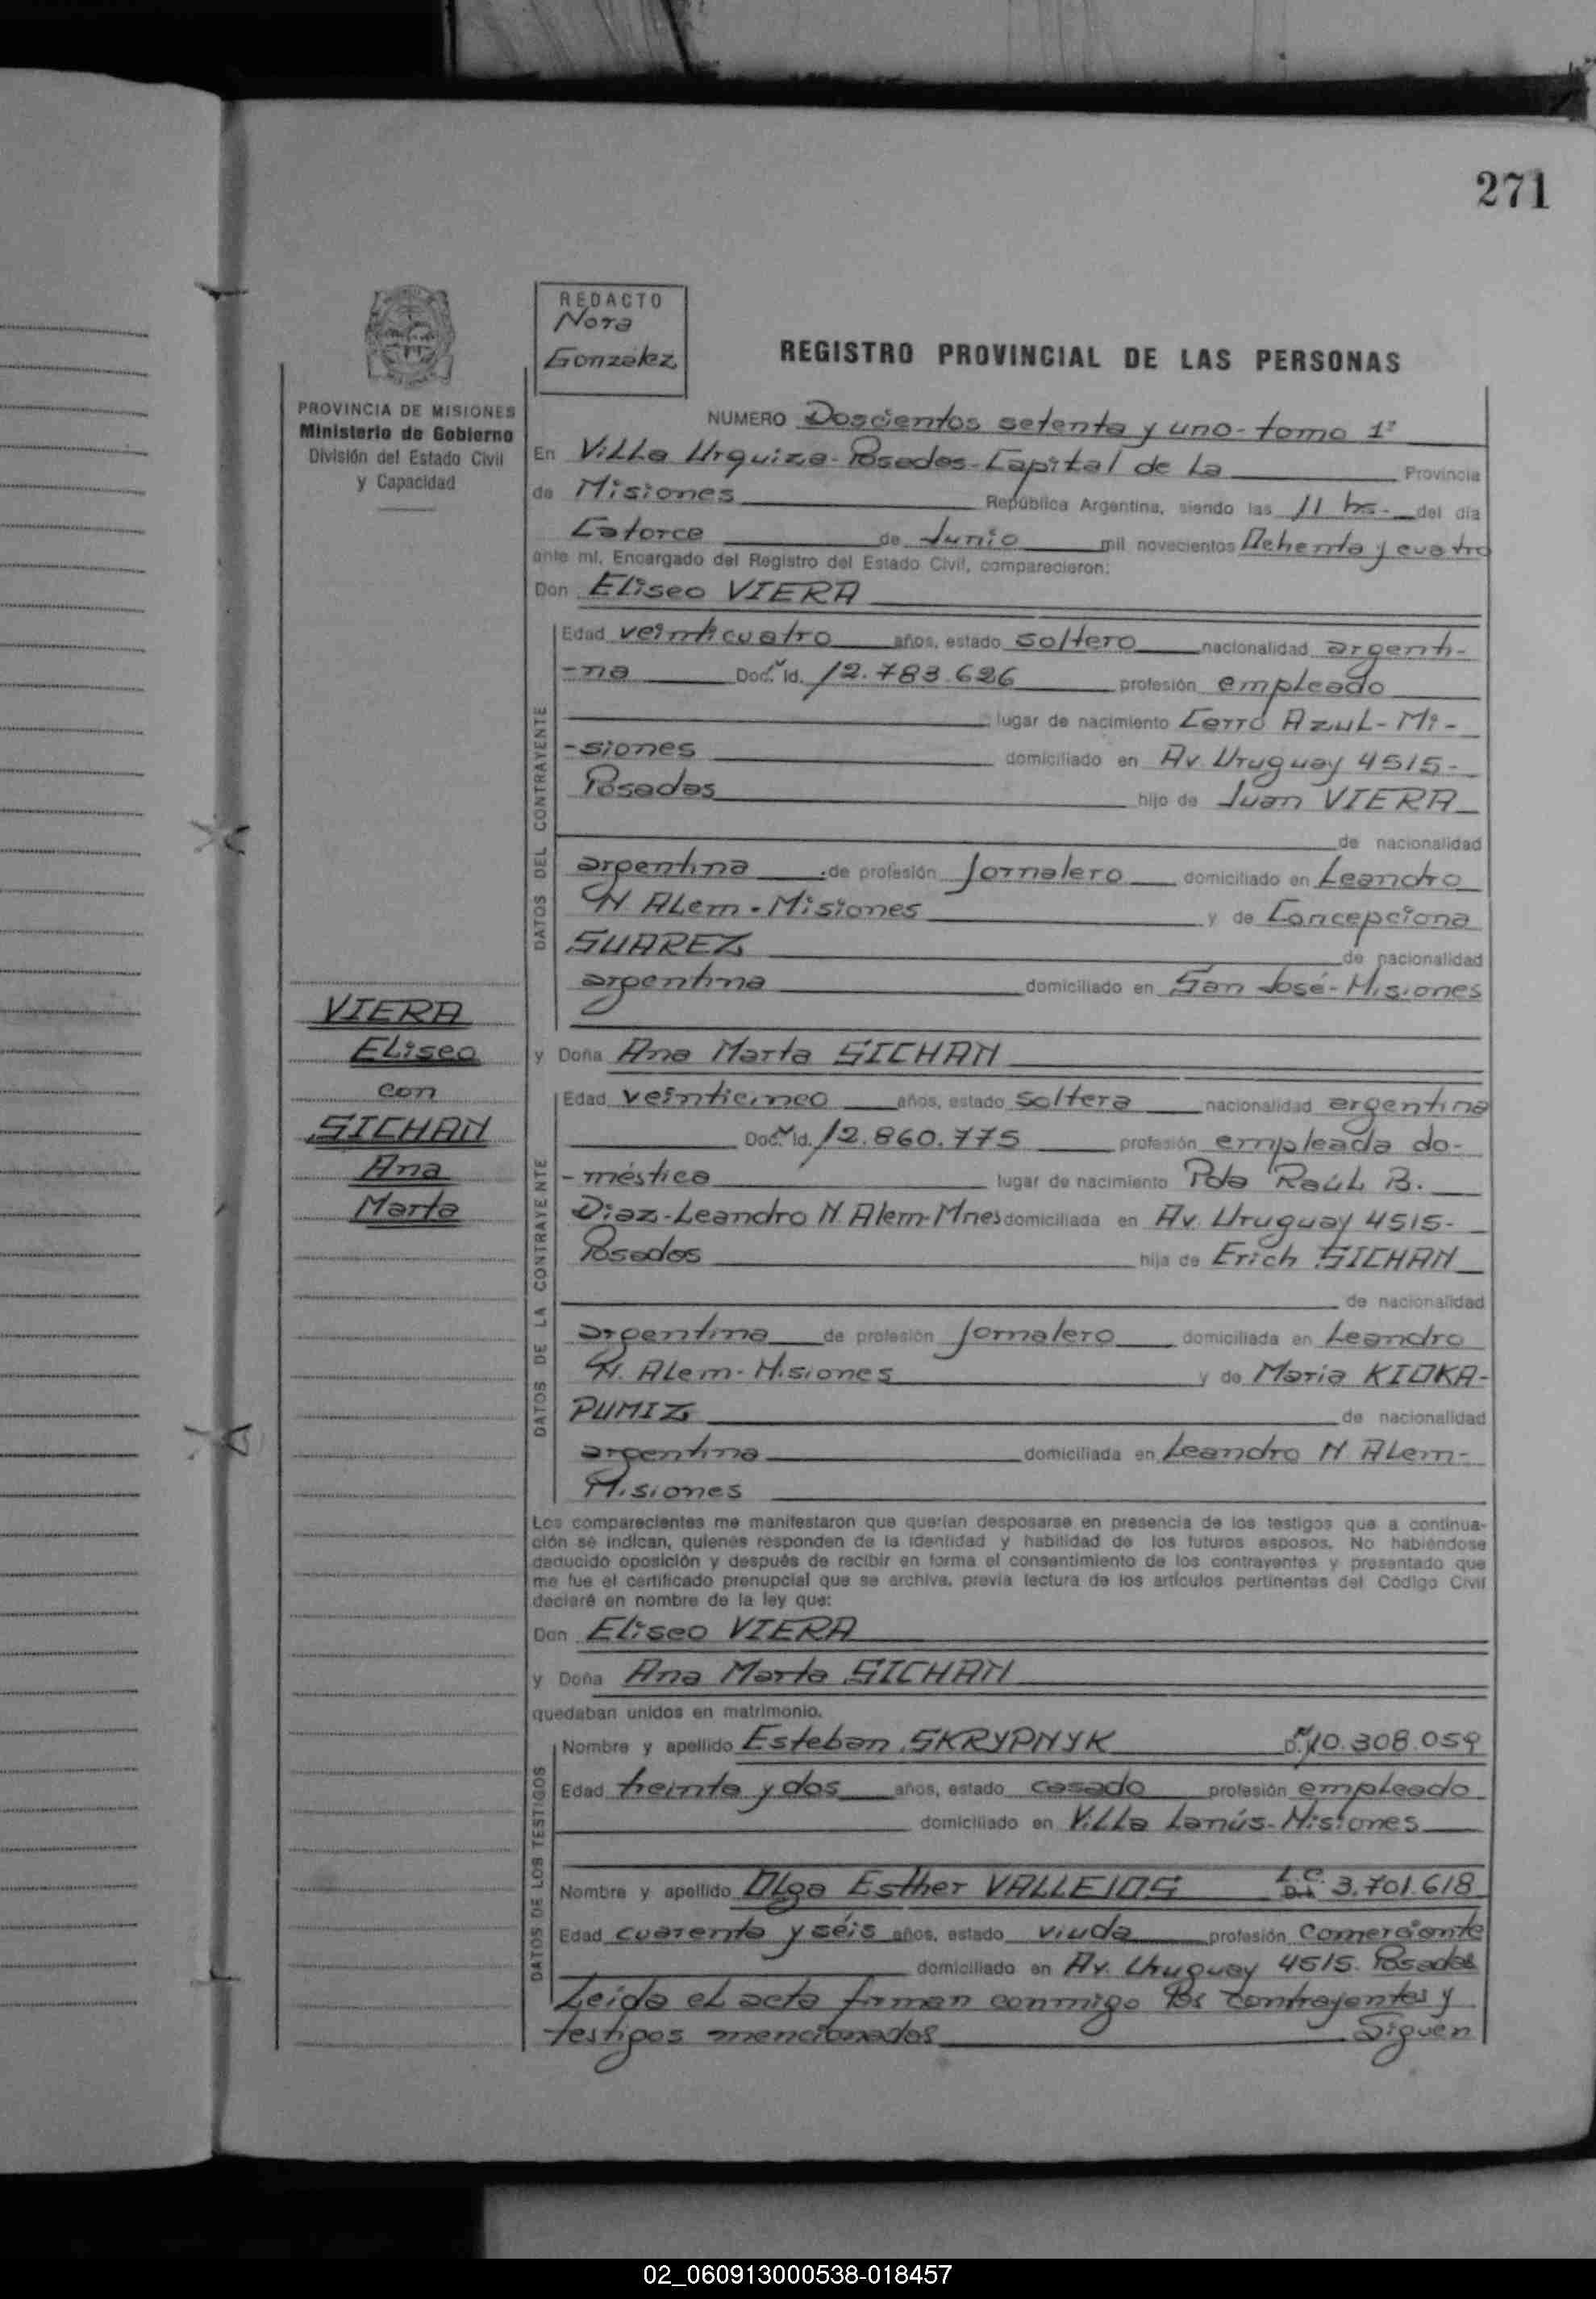 271
REDACTO
Nora
González
REGISTRO PROVINCIAL DE LAS PERSONAS
PROVINCIA DE MISIONES
Ministerio de Gobierno
División del Estado Civil
y Capacidad
NUMERO Doscientos setenta y uno - tomo 1º
En Villa Urquiza - Posadas - Capital de la Provincia
de Misiones República Argentina, siendo las 11 hs- del día
Catorce de Junio mil novecientos Ochenta y cuatro
ante mí, Encargado del Registro del Estado Civil, comparecieron:
Don Eliseo VIERA
DATOS DEL CONTRAYENTE
Edad veinticuatro años, estado soltero nacionalidad argenti-
-na Doc. Id. 12.783.626 profesión empleado
lugar de nacimiento Cerro Azul - Mi-
-siones domiciliado en Av. Uruguay 4515-
Posadas hijo de Juan VIERA
de nacionalidad
argentina de profesión Jornalero domiciliado en Leandro
N. Alem - Misiones y de Concepciona
SUAREZ de nacionalidad
argentina domiciliado en San José - Misiones
VIERA
Eliseo
con
SICHAN
Ana
Marta
y Doña Ana Marta SICHAN
DATOS DE LA CONTRAYENTE
Edad veinticinco años, estado soltera nacionalidad argentina
Doc. Id. 12.860.775 profesión empleada do-
-méstica lugar de nacimiento Pda Raúl B.
Díaz - Leandro N. Alem - Mnes domiciliada en Av. Uruguay 4515-
Posadas hija de Erich SICHAN
de nacionalidad
argentina de profesión Jornalero domiciliada en Leandro
N. Alem - Misiones y de Maria KIOKA-
PUMIZ de nacionalidad
argentina domiciliada en Leandro N. Alem-
Misiones
Los comparecientes me manifestaron que querían desposarse en presencia de los testigos que a continua-
ción se indican, quienes responden de la identidad y habilidad de los futuros esposos. No habiéndose
deducido oposición y después de recibir en forma el consentimiento de los contrayentes y presentado que
me fue el certificado prenupcial que se archiva, previa lectura de los artículos pertinentes del Código Civil
declaré en nombre de la ley que:
Don Eliseo VIERA
y Doña Ana Marta SICHAN
quedaban unidos en matrimonio.
DATOS DE LOS TESTIGOS
Nombre y apellido Esteban SKRYPNYK 10.308.059
Edad treinta y dos años, estado casado profesión empleado
domiciliado en Villa Lanús - Misiones
Nombre y apellido Olga Esther VALLEJOS L.C. 3.701.618
Edad cuarenta y séis años, estado viuda profesión comerciante
domiciliado en Av. Uruguay 4515. Posadas
Leída el acta firman conmigo los contrayentes y
testigos mencionados Siguen
02_060913000538-018457